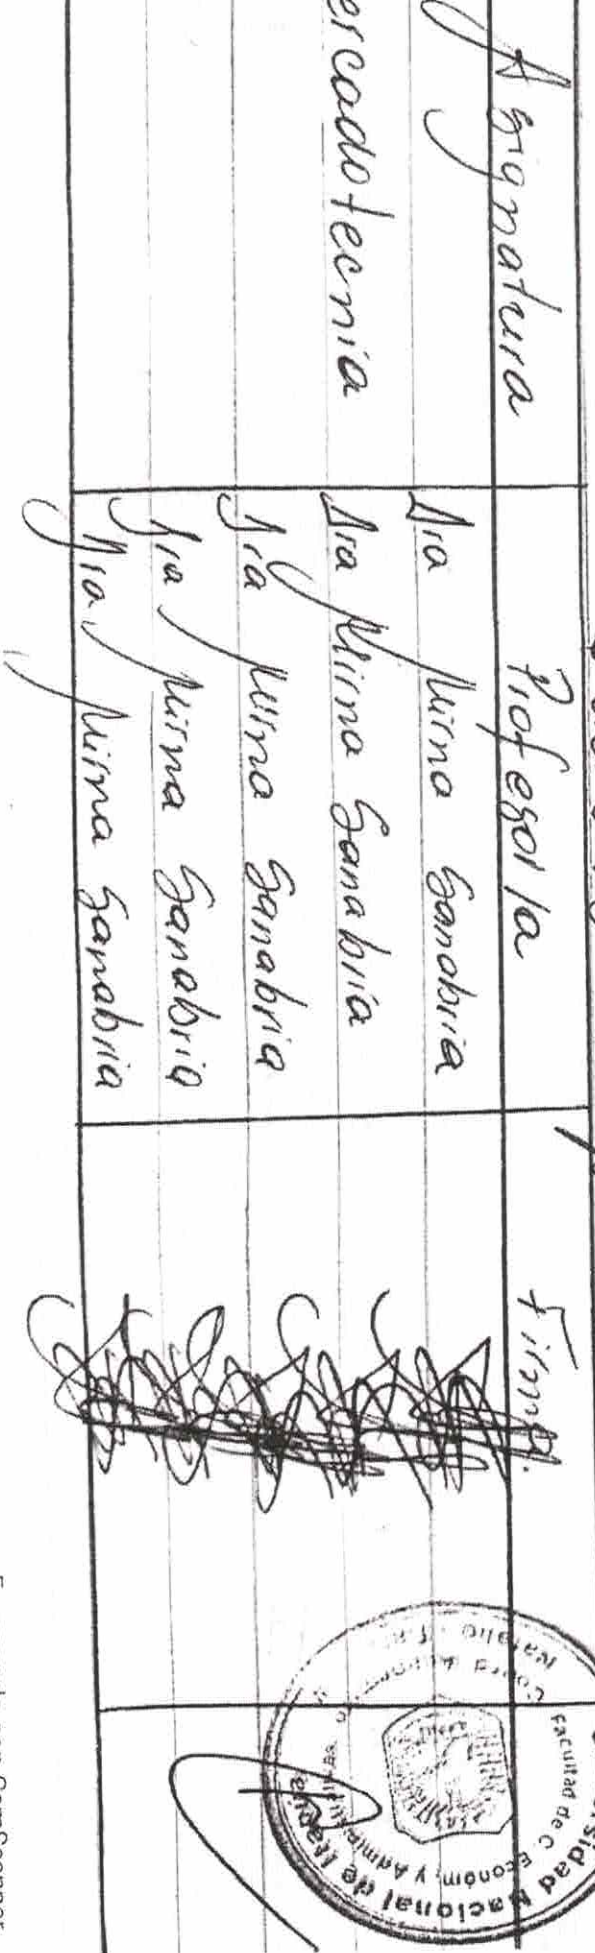 Asignatura Profesor/a Firma.
Dra Mirna Sanabria
Dra Mirna Sanabria
Dra Mirna Sanabria
Dra Mirna Sanabria
Dra Mirna Sanabria
Nacional de
Facultad de C. Económ. y
Natalio